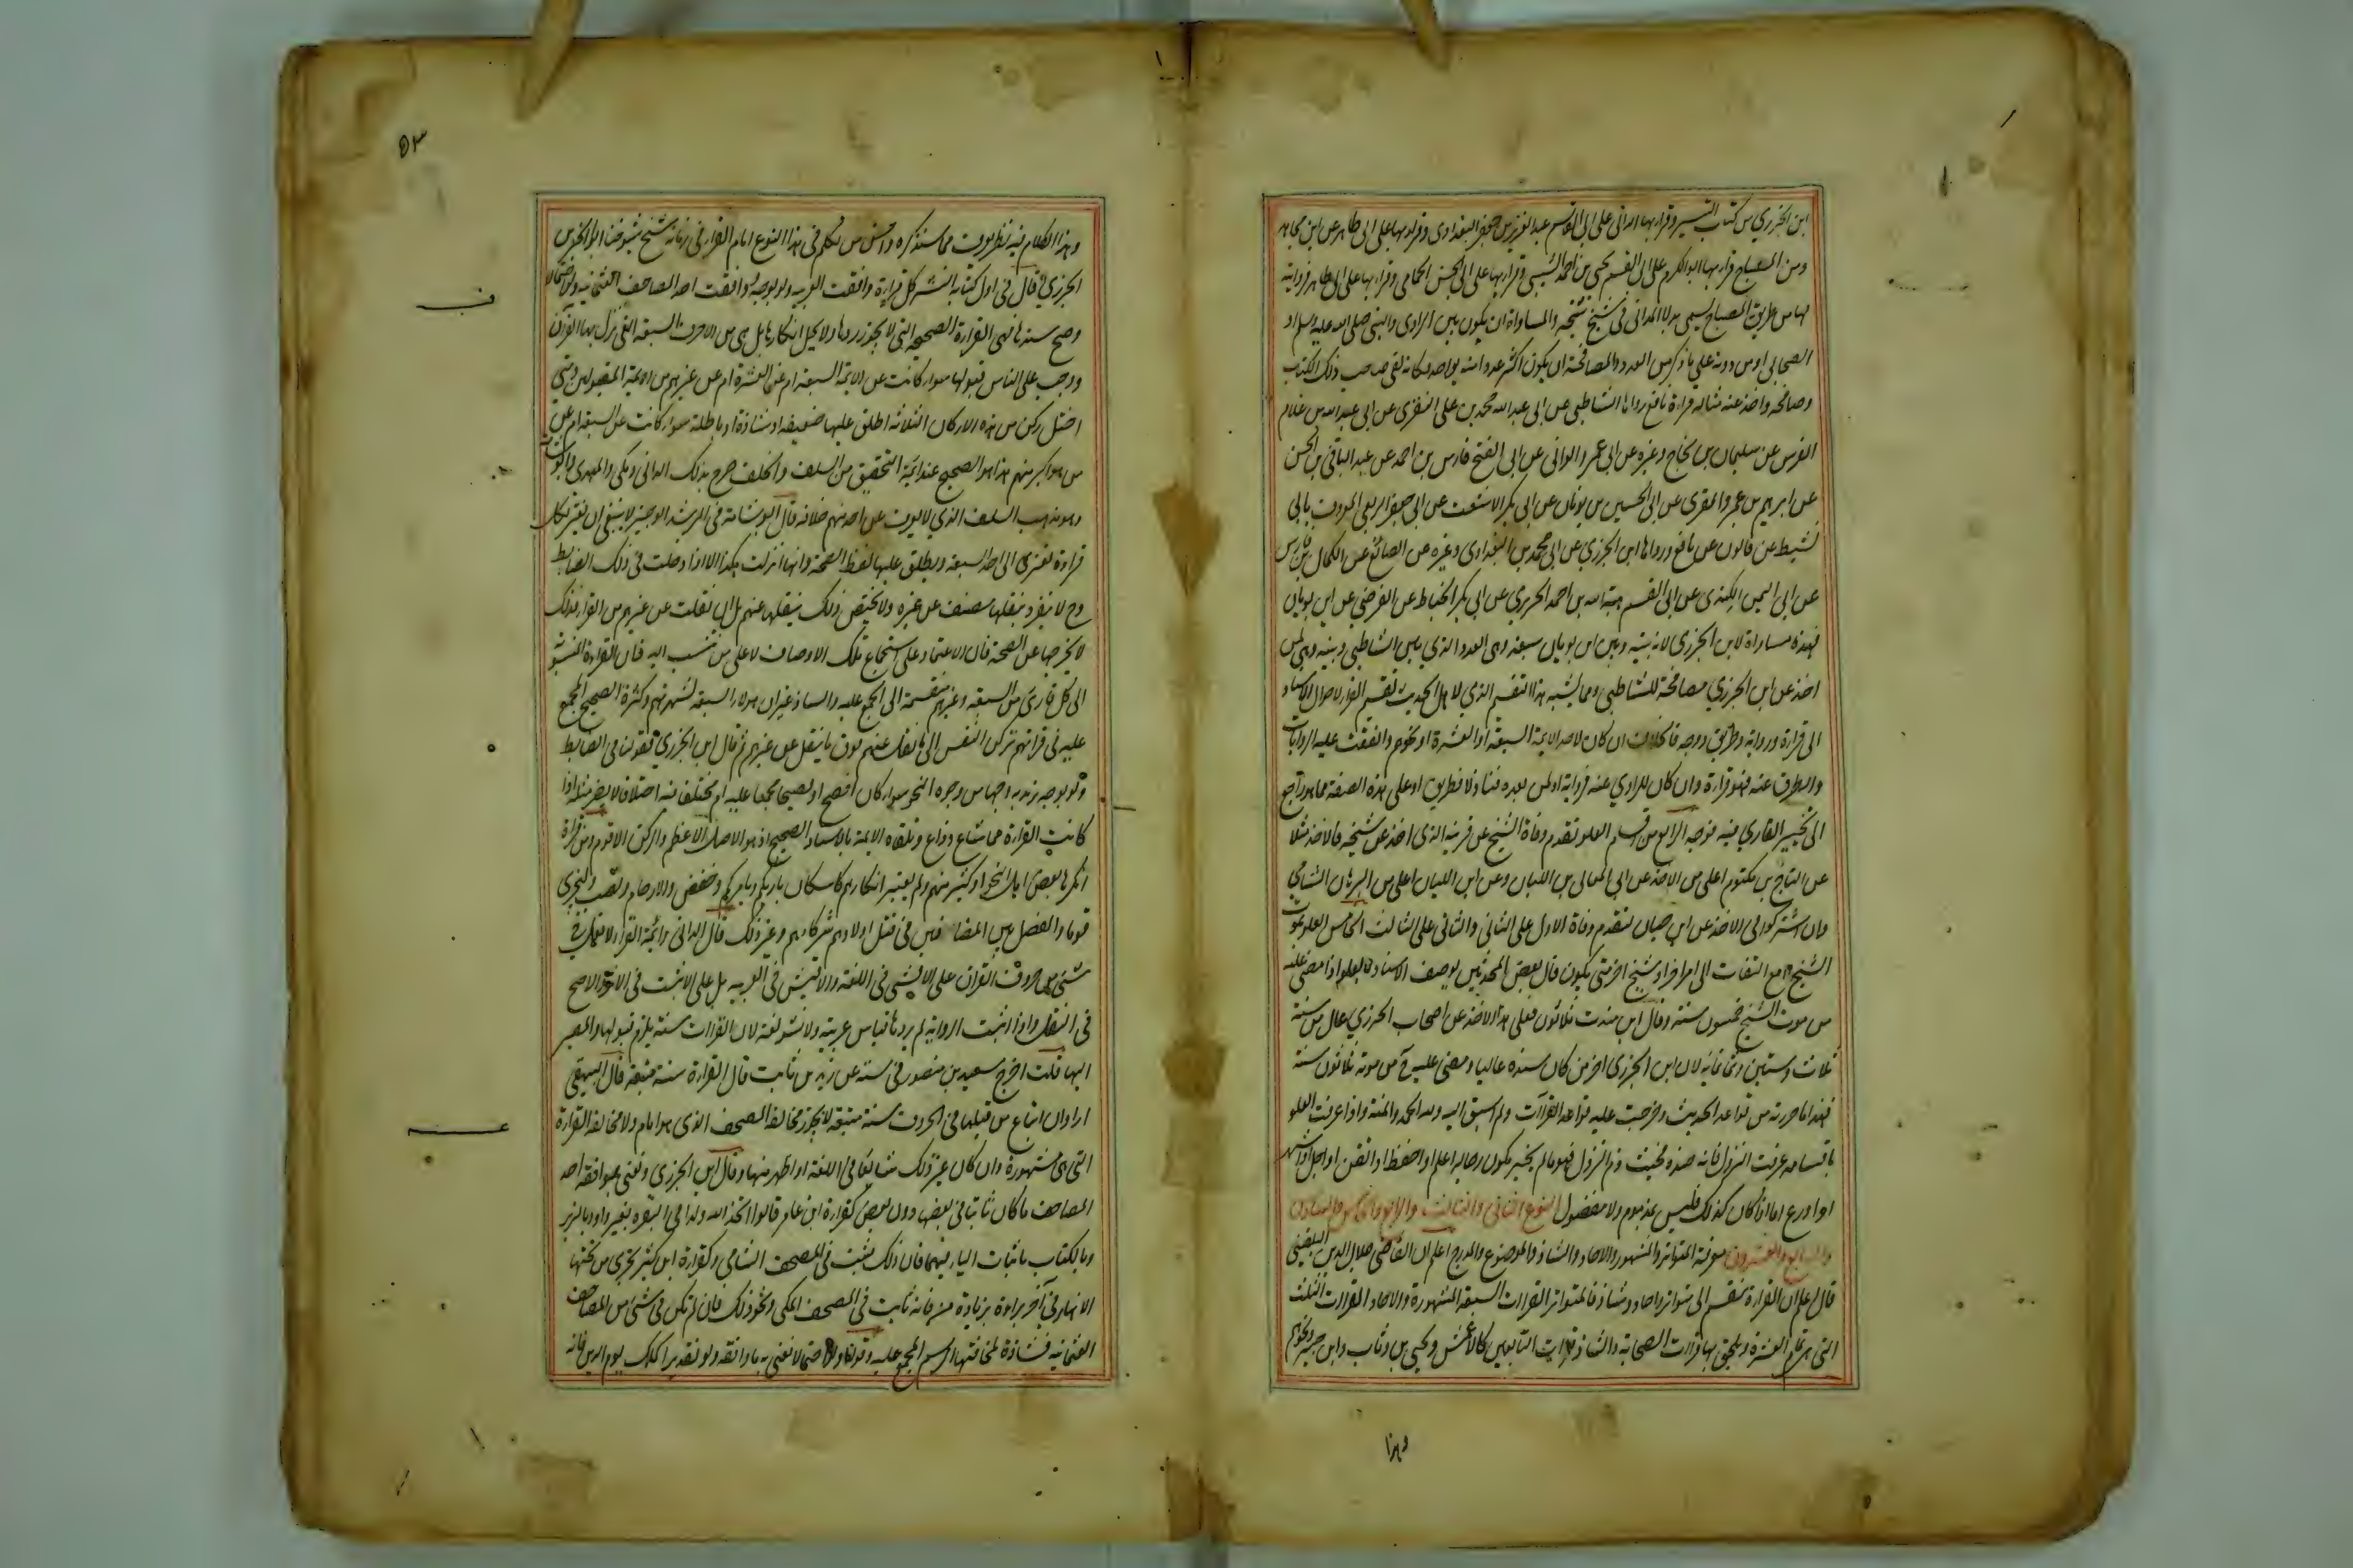 ابن الجزري من كتاب التيسير وقرا بها الداني على ابي القاسم عبد العزيز بن جعفر البغدادي وقرا بها على ابي طاهر عن ابن مجاهد
ومن المصباح قرا بها ابو الكرم على ابي القسم يحيى بن احمد السيبي وقرا بها على ابي الحسن الحمامي وقرا بها على ابي طاهر فروايته
لها من طريق المصباح يسمى بدلا للداني في شيخ شيخه والمساواة ان يكون بين الراوي والنبي صلى الله عليه وسلم او
الصحابي او من دونه على ما ذكر من العدد والمصافحة ان يكون اكثر عددا منه بواحد فكانه لقي صاحب ذلك الكتاب
وصافحه واخذ عنه مثاله قراءة نافع رواها الشاطبي عن ابي عبد الله محمد بن علي النفزي عن ابي عبد الله بن غلام
الفرس عن سليمان بن نجاح وغيره عن ابي عمرو الداني عن ابي الفتح فارس بن احمد عن عبد الباقي بن الحسن
عن ابراهيم بن عمر والمقري عن ابي الحسين بن بويان عن ابي بكر الاشعث عن ابي جعفر الربعي المعروف بابي
نشيط عن قالون عن نافع ورواها ابن الجزري عن ابي محمد بن البغدادي وغيره عن الصائغ عن الكمال بن فارس
عن ابي اليمن الكندي عن ابي القسم هبة الله بن احمد الحريري عن ابي بكر الخياط عن الفرضي عن ابن بويان
فهذه مساواة لابن الجزري لان بينه وبين ابن بويان سبعة وهي العدد الذي بين الشاطبي وبينه وهي لمن
اخذ عن ابن الجزري مصافحة للشاطبي ومما يشبه هذا التقسيم الذي لاهل الحديث تقسيم القراء لاحوال الاسناد
الى قراءة ورواية وطريق ووجه فالخلاف ان كان لاحد الايمة السبعة او العشرة او نحوهم واتفقت عليه الروايات
والطرق عنه فهو قراءة وان كان للراوي عنه فرواية او لمن بعده فنازلا فطريق او على هذه الصفة مما هو راجع
الى تخيير القاري فيه فوجه الرابع من اقسام العلو تقدم وفاة الشيخ عن قرينه الذي اخذ عن شيخه فالاخذ مثلا
عن التاج بن مكتوم اعلى من الاخذ عن ابي المعالي بن اللبان وعن ابن اللبان اعلى من البرهان الشامي
وان اشتركوا في الاخذ عن ابي حيان لتقدم وفاة الاول على الثاني والثاني على الثالث الخامس العلو بموت
الشيخ لا مع التفات الى امر اخر او شيخ اخر متى يكون قال بعض المحدثين يوصف الاسناد بالعلو اذا مضى عليه
من موت الشيخ خمسون سنة وقال ابن مندة ثلاثون فعلى هذا الاخذ عن اصحاب الجزري عال من سنة
ثلاث وستين وثمانمائة لان ابن الجزري اخر من كان سنده عاليا ومضى عليه ح من موته ثلاثون سنة
فهذا ما حررته من قواعد الحديث وخرجت عليه قواعد القراآت ولم اسبق اليه ولله الحمد والمنة واذا عرفت العلو
باقسامه عرفت النزول فانه ضده فحيث ذم النزول فهو ما لم ينجبر بكون رجاله اعلم او احفظ او اتقن او اجل او اشهر
او اورع اما اذا كان كذلك فليس بمذموم ولا مفضول النوع الثاني والثالث والرابع والخامس والسادس
والسابع والعشرون معرفة المتواتر والمشهور والاحاد والشاذ والموضوع والمدرج اعلم ان القاضي جلال الدين البلقيني
قال اعلم ان القراءة تنقسم الى متواتر واحاد وشاذ فالمتواتر القراءات السبعة المشهورة والاحاد القراءات الثلث
التي هي تمام العشرة ويلحق بها قراءت الصحابة والشاذ قراءت التابعين كالاعمش ويحيى بن وثاب وابن جبير ونحوهم
وهذا
٥٣
وهذا الكلام فيه نظر يعرف مما سنذكره واحسن من تكلم في هذا النوع امام القراء في زمانه شيخ شيوخنا ابو الخير بن
الجزري قال في اول كتابه النشر كل قراءة وافقت العربية ولو بوجه ووافقت احد المصاحف العثمانية ولو احتمالا
وصح سندها فهي القراءة الصحيحة التي لا يجوز ردها ولا يحل انكارها بل هي من الاحرف السبعة التي نزل بها القرآن
ووجب على الناس قبولها سواء كانت عن الائمة السبعة ام عن العشرة ام عن غيرهم من الايمة المقبولين ومتى
اختل ركن من هذه الاركان الثلاثة اطلق عليها ضعيفة او شاذة او باطلة سواء كانت عن السبعة ام عن
من هو اكبر منهم هذا هو الصحيح عند ايمة التحقيق من السلف والخلف صرح بذلك الداني ومكي والمهدوي وابو شامة
وهو مذهب السلف الذي لا يعرف عن احد منهم خلافه قال ابو شامة في المرشد الوجيز لا ينبغي ان يغتر بكل
قراءة تعزى الى احد السبعة ويطلق عليها لفظ الصحة وانها انزلت هكذا الا اذا دخلت في ذلك الضابط
وح لا ينفرد بنقلها مصنف عن غيره ولا يختص ذلك بنقلها عنهم بل ان نقلت عن غيرهم من القراء فذلك
لا يخرجها عن الصحة فان الاعتماد على استجماع تلك الاوصاف لا على من تنسب اليه فان القراءة المنسوبة
الى كل قارئ من السبعة وغيرهم منقسمة الى المجمع عليه والشاذ غير ان هولاء السبعة لشهرتهم وكثرة الصحيح المجمع
عليه في قراتهم تركن النفس الى ما نقل عنهم فوق ما ينقل عن غيرهم ثم قال ابن الجزري فقولنا في الضابط
ولو بوجه نريد به وجها من وجوه النحو سواء كان افصح او فصيحا مجمعا عليه ام مختلفا فيه اختلافا لا يضر مثله اذا
كانت القراءة مما شاع وذاع وتلقاه الايمة بالاسناد الصحيح اذ هو الاصل الاعظم والركن الاقوم وكم من قراءة
انكرها بعض اهل النحو او كثير منهم ولم يعتبر انكارهم كاسكان بارئكم ويامركم وخفض والارحام ونصب ليجزي
قوما والفصل بين المضافين في قتل اولادهم شركائهم وغير ذلك قال الداني وائمة القراء لا تعمل في
شئ من حروف القران على الافشى في اللغة والاقيس في العربية بل على الاثبت في الاثر والاصح
في النقل واذا ثبت الرواية لم يردها قياس عربية ولا فشو لغة لان القراات سنة يلزم قبولها والمصير
اليها قلت اخرج سعيد بن منصور في سننه عن زيد بن ثابت قال القراءة سنة متبعة قال البيهقي
اراد ان اتباع من قبلها في الحروف سنة متبعة لا يجوز مخالفة المصحف الذي هو امام ولا مخالفة القراءة
التي هي مشهورة وان كان غير ذلك شائعا في اللغة او اظهر منها وقال ابن الجزري ونعني بموافقة احد
المصاحف ما كان ثابتا في بعضها دون بعض كقراءة ابن عامر قالوا اتخذ الله ولدا في البقرة بغير واو وبالزبر
وبالكتاب باثبات الباء فيهما فان ذلك يثبت في المصحف الشامي وكقراءة ابن كثير تجري من تحتها
الانهار في آخر براءة بزيادة من فانه ثابت في المصحف المكي ونحو ذلك فان لم تكن في شئ من المصاحف
العثمانية فشاذة لمخالفتها الرسم المجمع عليه وقولنا ولو احتمالا نعني به ما وافقه ولو تقديرا كملك يوم الدين فانه